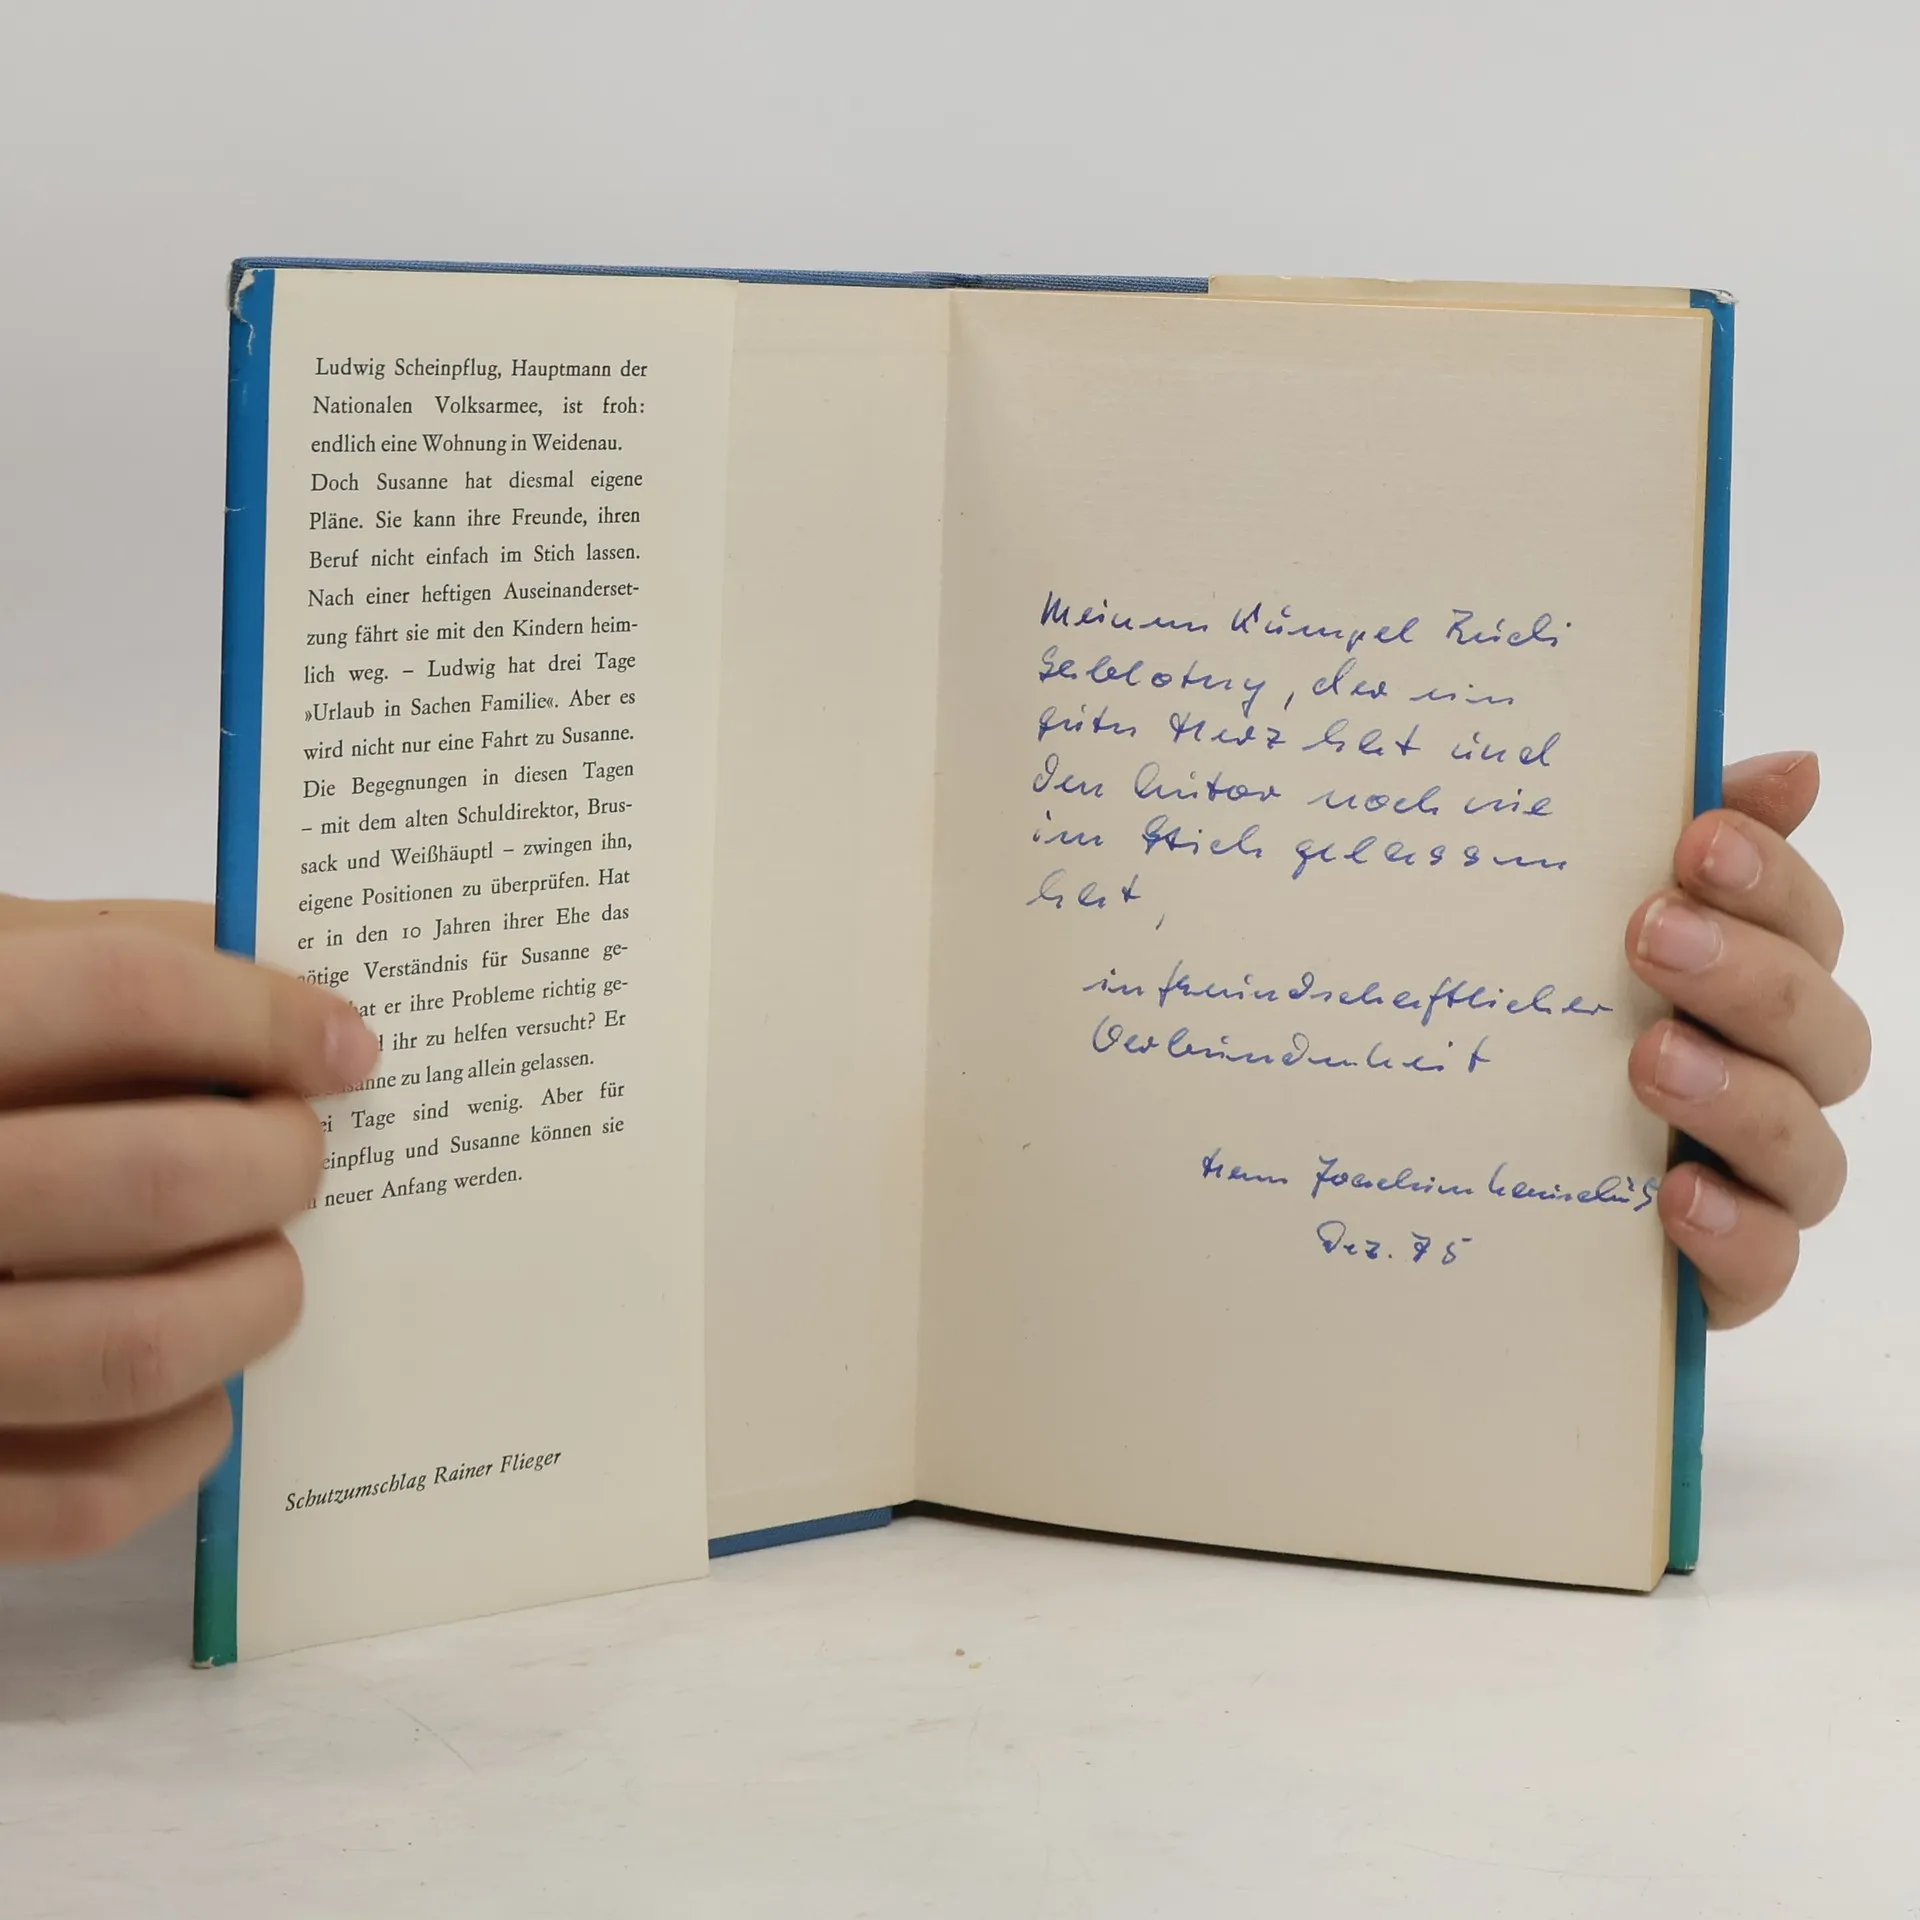 Ludwig Scheinpflug, Hauptmann der
Nationalen Volksarmee, ist froh:
endlich eine Wohnung in Weidenau.
Doch Susanne hat diesmal eigene
Pläne. Sie kann ihre Freunde, ihren
Beruf nicht einfach im Stich lassen.
Nach einer heftigen Auseinanderset-
zung fährt sie mit den Kindern heim-
lich weg. – Ludwig hat drei Tage
»Urlaub in Sachen Familie«. Aber es
wird nicht nur eine Fahrt zu Susanne.
Die Begegnungen in diesen Tagen
– mit dem alten Schuldirektor, Brus-
sack und Weißhäuptl – zwingen ihn,
eigene Positionen zu überprüfen. Hat
er in den 10 Jahren ihrer Ehe das
nötige Verständnis für Susanne ge-
hat er ihre Probleme richtig ge-
ihr zu helfen versucht? Er
Susanne zu lang allein gelassen.
Tage sind wenig. Aber für
einpflug und Susanne können sie
neuer Anfang werden.
Schutzumschlag Rainer Flieger
Meinem Kumpel Rudi
der ein
gutes Herz hat und
den Autor noch nie
im Stich gelassen
hat,
in freundschaftlicher
Verbundenheit
Hans Joachim
Dez. 75